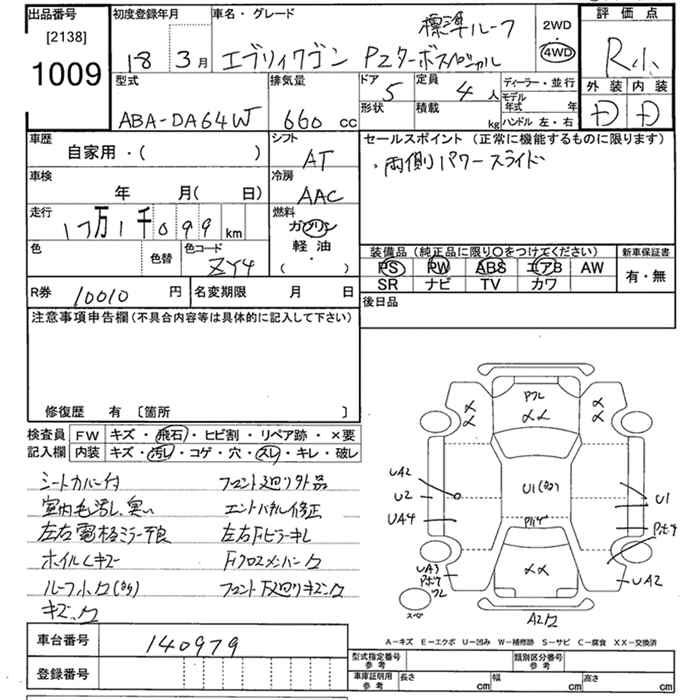 出品番号
[2138]
1009
初度登録年月
18 3月
車名・グレード
標準ルーフ
エブリィワゴン PZターボスペシャル
2WD
4WD
評価点
R小
外装 内装
D D
型式
ABA-DA64W
排気量
660 cc
ドア 5
形状
定員 4人
積載 kg
ディーラー・並行
モデル年式 年
ハンドル 左・右
車歴
自家用・( )
シフト
AT
車検
年 月( 日)
冷房
AAC
走行
17万1千099 km
燃料
ガソリン
軽油・
( )
色
色替
色コード
ZY4
セールスポイント (正常に機能するものに限ります)
・両側パワースライド
装備品(純正品に限り○をつけてください)
PS PW ABS エアB AW
SR ナビ TV カワ
新車保証書
有・無
R券 10010 円
名変期限 月 日
後日品
注意事項申告欄(不具合内容等は具体的に記入して下さい)
修復歴 有 〔箇所 〕
検査員記入欄
FW キズ・飛石・ヒビ割・リペア跡・×要
内装 キズ・汚レ・コゲ・穴・スレ・キレ・破レ
シートカバー付
室内毛汚レ、臭い
左右電格ミラー不良
ホイルCキズ
キズ、凹
フロント廻り外品
エンドパネル修正
左右Fピラーキレ
Fクロスメンバー凹
フロント下廻りキズ、凹
UA2
U2
UA4
U1
UA2
A2凹
スペア
A-キズ E-エクボ U-凹み W-補修跡 S-サビ C-腐食 XX-交換済
車台番号
140979
登録番号
型式指定番号 参考
類別区分番号 参考
車庫証明用 参考
長さ cm
幅 cm
高さ cm